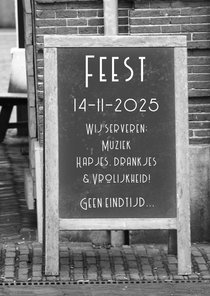 FEEST
14-11-2025
WIJ SERVEREN:
MUZIEK
HAPJES, DRANKJES
& VROLIJKHEID!
GEEN EINDTIJD...